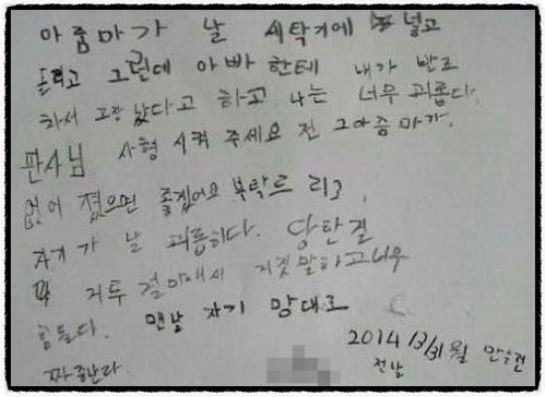 아줌마가 날 세탁기에 널고
돌리고 그런데 아빠 한테 내가 발로
차서 고장 났다고 하고 나는 너무 괴롭다.
판사님 사형 시켜 주세요 전 그아줌마가.
없어 졌으면 좋겠어요 부탁르 리고,
자기가 날 괴름히다. 당탄결
꽈 거짓말하고너무
힘들다. 맨날 자기 망대로
2014 월
짜증난다. 전날